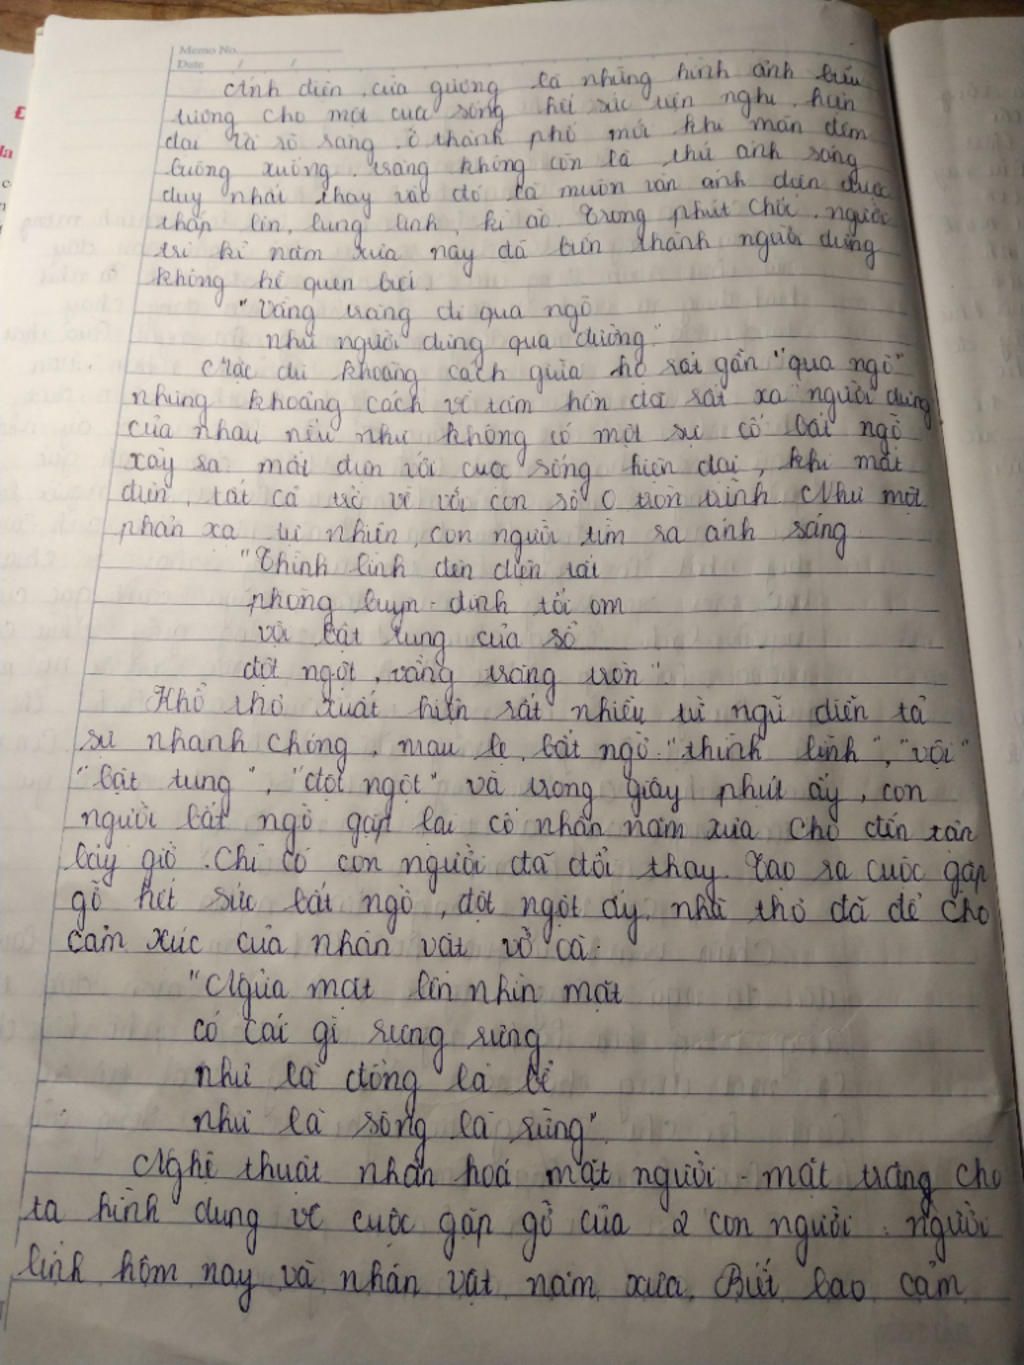 Memo No.
Date / /
Ánh điện, cửa gương là những hình ảnh biểu
tượng cho một cuộc sống hết sức tiện nghi, hiện
đại và số sang. Ở thành phố mới khi màn đêm
buông xuống, trăng không còn là thứ ánh sáng
duy nhất thay vào đó là muôn vàn ánh điện được
thắp lên, lung linh, kì ảo. Trong phút chốc, người
tri kỉ năm xưa nay đã biến thành người dưng
không hề quen biết.
"Vầng trăng đi qua ngõ
như người dưng qua đường"
Mặc dù khoảng cách giữa họ rất gần "qua ngõ"
nhưng khoảng cách về tâm hồn đã rất xa "người dưng
của nhau nếu như không có một sự cố bất ngờ
xảy ra. mất điện với cuộc sống hiện đại, khi mất
điện, tất cả trở về với con số 0 tròn trĩnh. Như một
phản xạ tự nhiên, con người tìm ra ánh sáng
"Thình lình đèn điện tắt
phòng buyn - đinh tối om
vội bật tung cửa sổ
đột ngột, vầng trăng tròn".
Khổ thơ xuất hiện rất nhiều từ ngữ diễn tả
sự nhanh chóng, mau lẹ, bất ngờ. "thình lình", "vội"
"bật tung", "đột ngột" và trong giây phút ấy, con
người bất ngờ gặp lại cố nhân năm xưa cho đến tận
bây giờ. Chỉ có con người đã đổi thay. Tạo ra cuộc gặp
gỡ hết sức bất ngờ, đột ngột ấy, nhà thơ đã để cho
cảm xúc của nhân vật vỡ oà:
"Ngửa mặt lên nhìn mặt
có cái gì rưng rưng
như là đồng là bể
như là sông là rừng"
Nghệ thuật nhân hoá mặt người - mặt trăng cho
ta hình dung về cuộc gặp gỡ của 2 con người: người
lính hôm nay và nhân vật năm xưa. Biết bao cảm